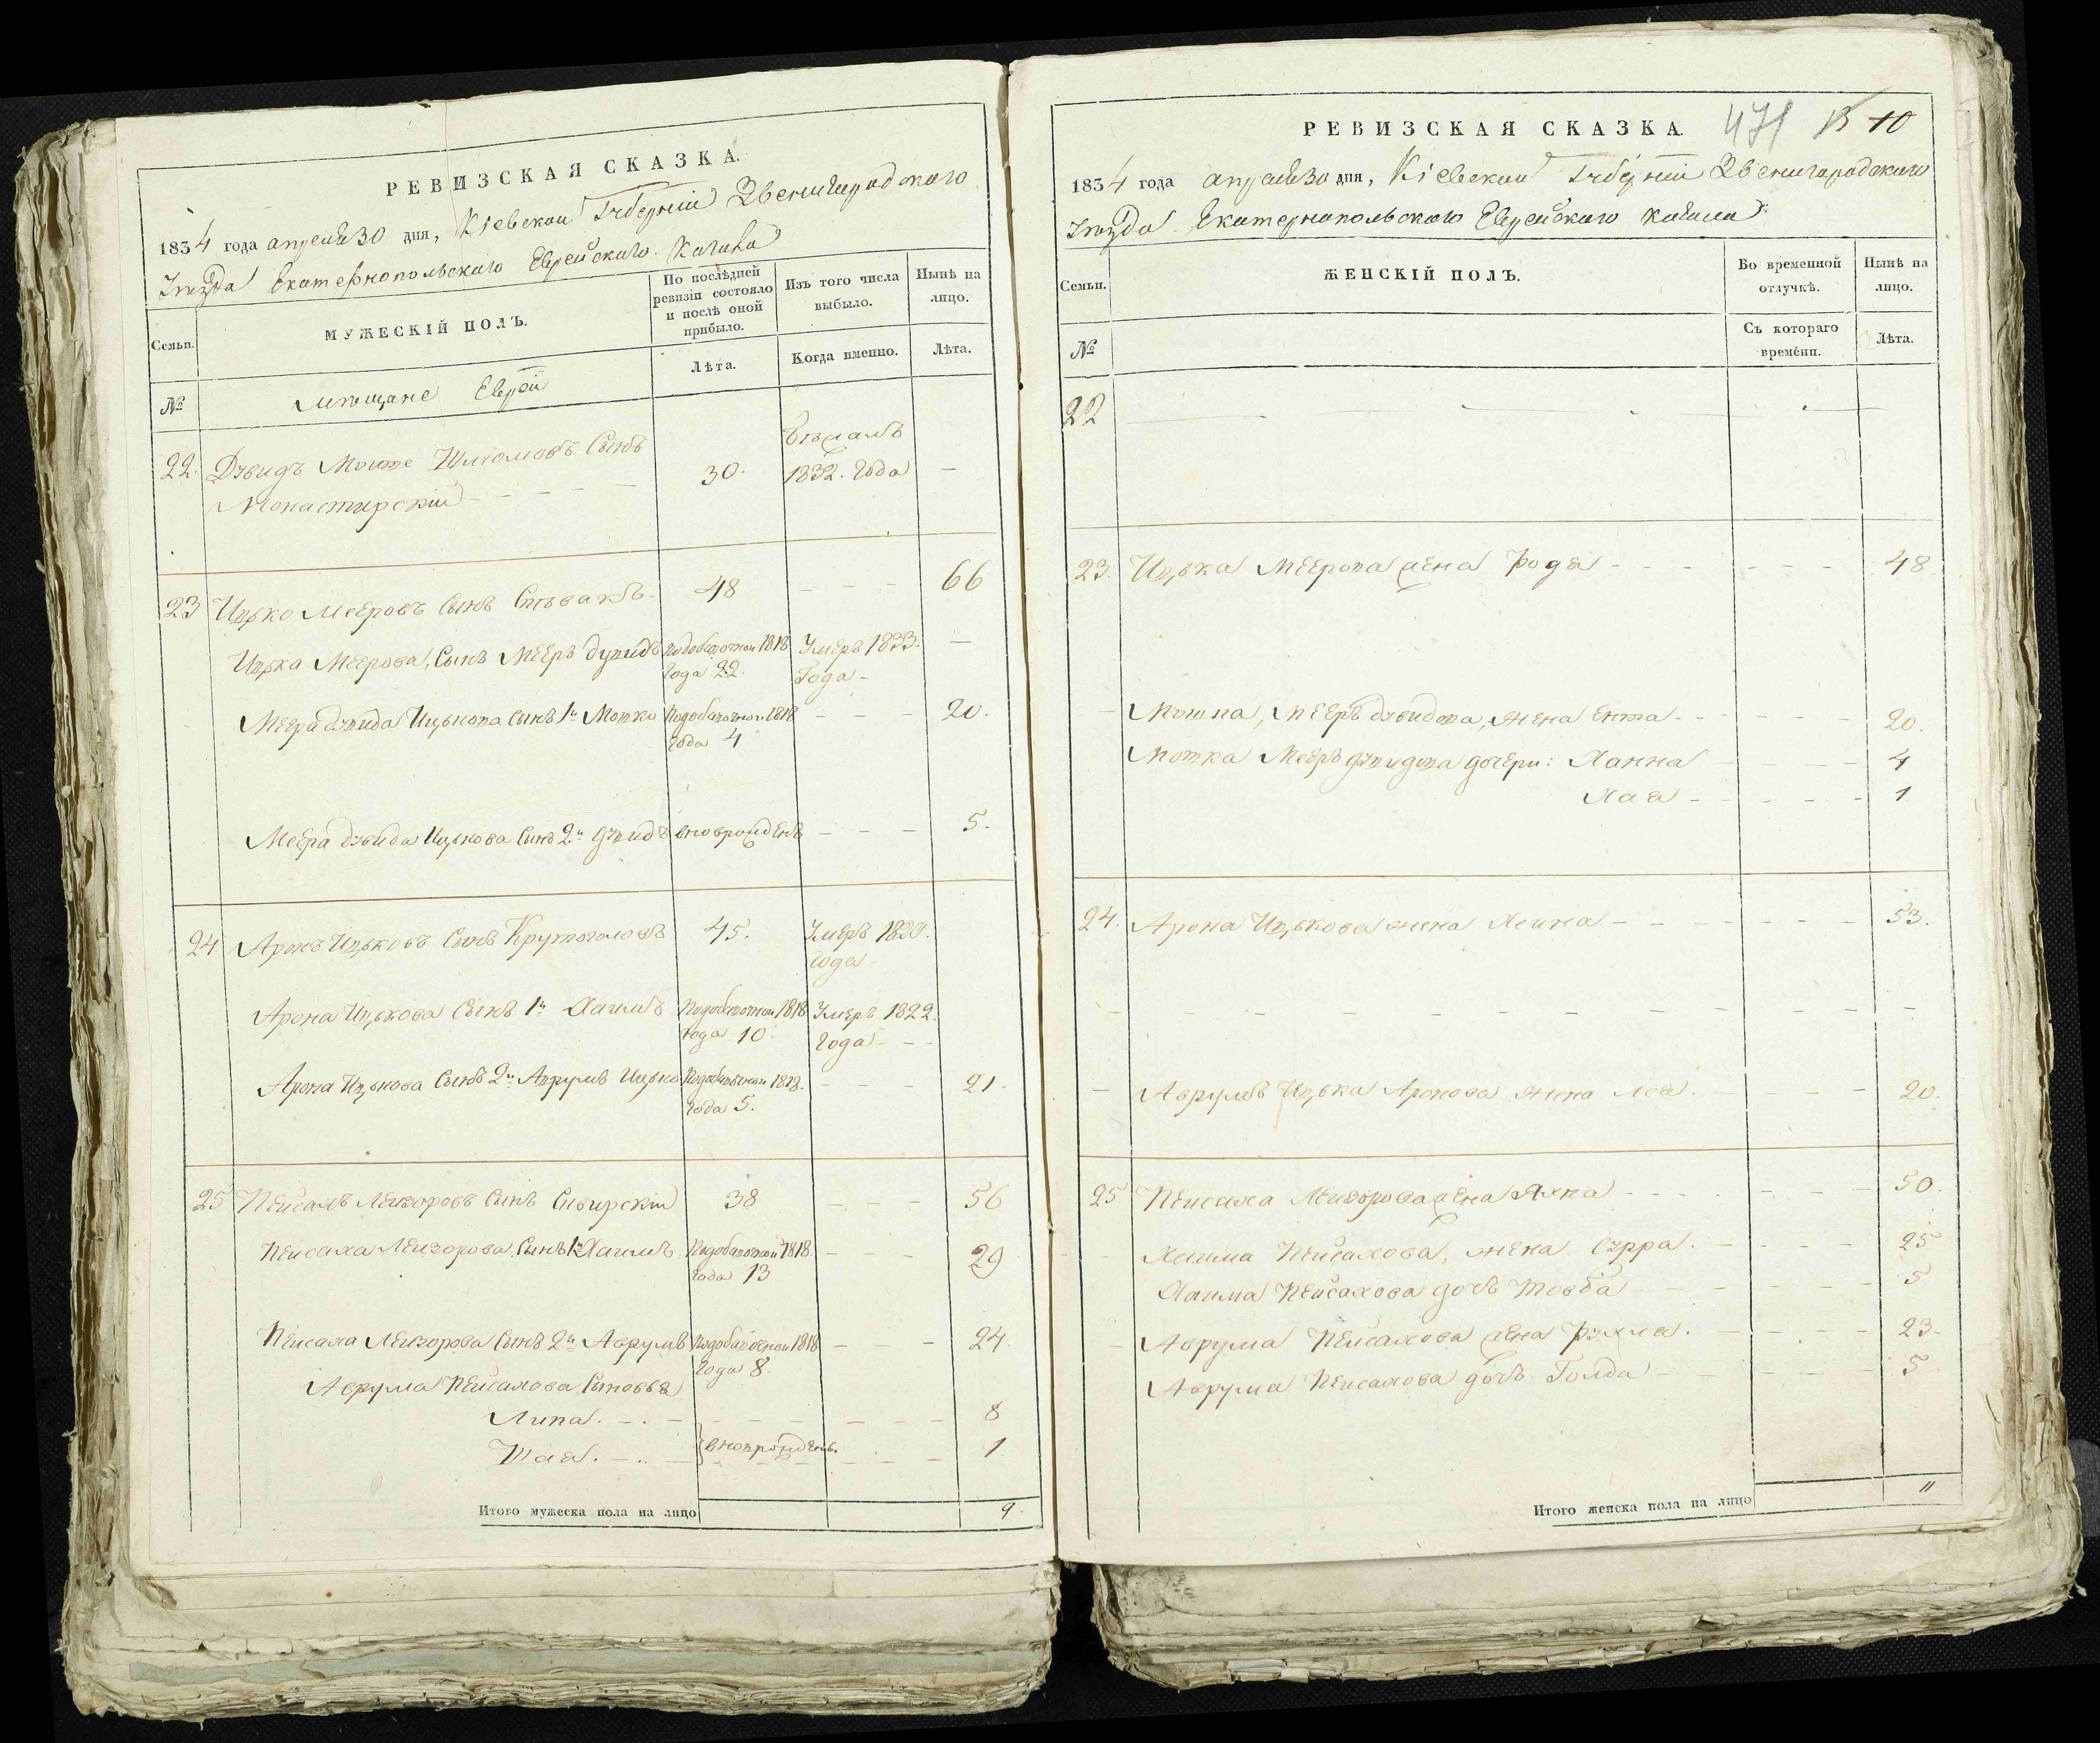 РЕВИЗСКАЯ СКАЗКА.
1834 года апреля 30 дня, Кіевской Губерніи Звенигородскаго
Уѣзда Екатеринопольскаго Еврейскаго Кагала
Семьи. МУЖЕСКІЙ ПОЛЪ. По послѣдней ревизіи состояло и послѣ оной прибыло. Изъ того числа выбыло. Нынѣ на лицо.
№ Лѣта. Когда именно. Лѣта.
мѣщане Евреи
22. Дувидъ Мошке Шлiомовъ Сынъ
Монастирскій 30. 1832. Года —
23 Ицко Мееровъ Сынъ Спѣвакъ 48 — — — 66
Ицка Меерова, Сынъ Мееръ Дувидъ 1818 Года 22. Умеръ 1833. Года —
Меера Дувида Ицькова Сынъ 1й Мотко 1818 Года 4 — — — 20.
Меера Дувида Ицькова Сынъ 2й Дувидъ вноврожденъ — — — 5.
24 Аронъ Ицьковъ Сынъ Круглоголовъ 45. Умеръ Года
Арона Ицькова Сынъ 1й Хаимъ 1818 Года 10. Умеръ 1822. Года — —
Арона Ицькова Сынъ 2й Аврумъ Ицько 1818. Года 5. — — — 21.
25 Пейсахъ Лейзоровъ Сынъ Сибирскій 38 — — — 56
Пейсаха Лейзорова Сынъ 1й Хаимъ 1818 Года 13 — — — 29
Пейсаха Лейзорова Сынъ 2й Аврумъ 1818 Года 8. — — — 24.
Аврума Пейсахова Сыновья
Липа. 8
Шая. вноврожденъ. 1
Итого мужеска пола на лицо 9.
РЕВИЗСКАЯ СКАЗКА. 471 10
1834 года апреля 30 дня, Кіевской Губерніи Звенигородскаго
Уѣзда Екатеринопольскаго Еврейскаго Кагала
Семьи. ЖЕНСКІЙ ПОЛЪ. Во временной отлучкѣ. Нынѣ на лицо.
№ Съ котораго времени. Лѣта.
22 — — — —
23. Ицька Меерова жена Рода 48
Мошка, Мееръ Дувидова, жена Ента 20.
Мотка Мееръ Дувидова дочери: Ханна 4
Хая 1
24. Арона Ицькова жена 53.
Аврумъ Ицька Аронова жена Лея. 20.
25 Пейсаха Лейзорова жена Яхна 50.
Хаима Пейсахова, жена Сурра. 25
Хаима Пейсахова дочь Товба 5
Аврума Пейсахова жена Рухля. 23
Аврума Пейсахова дочь Голда 5
Итого женска пола на лицо 11